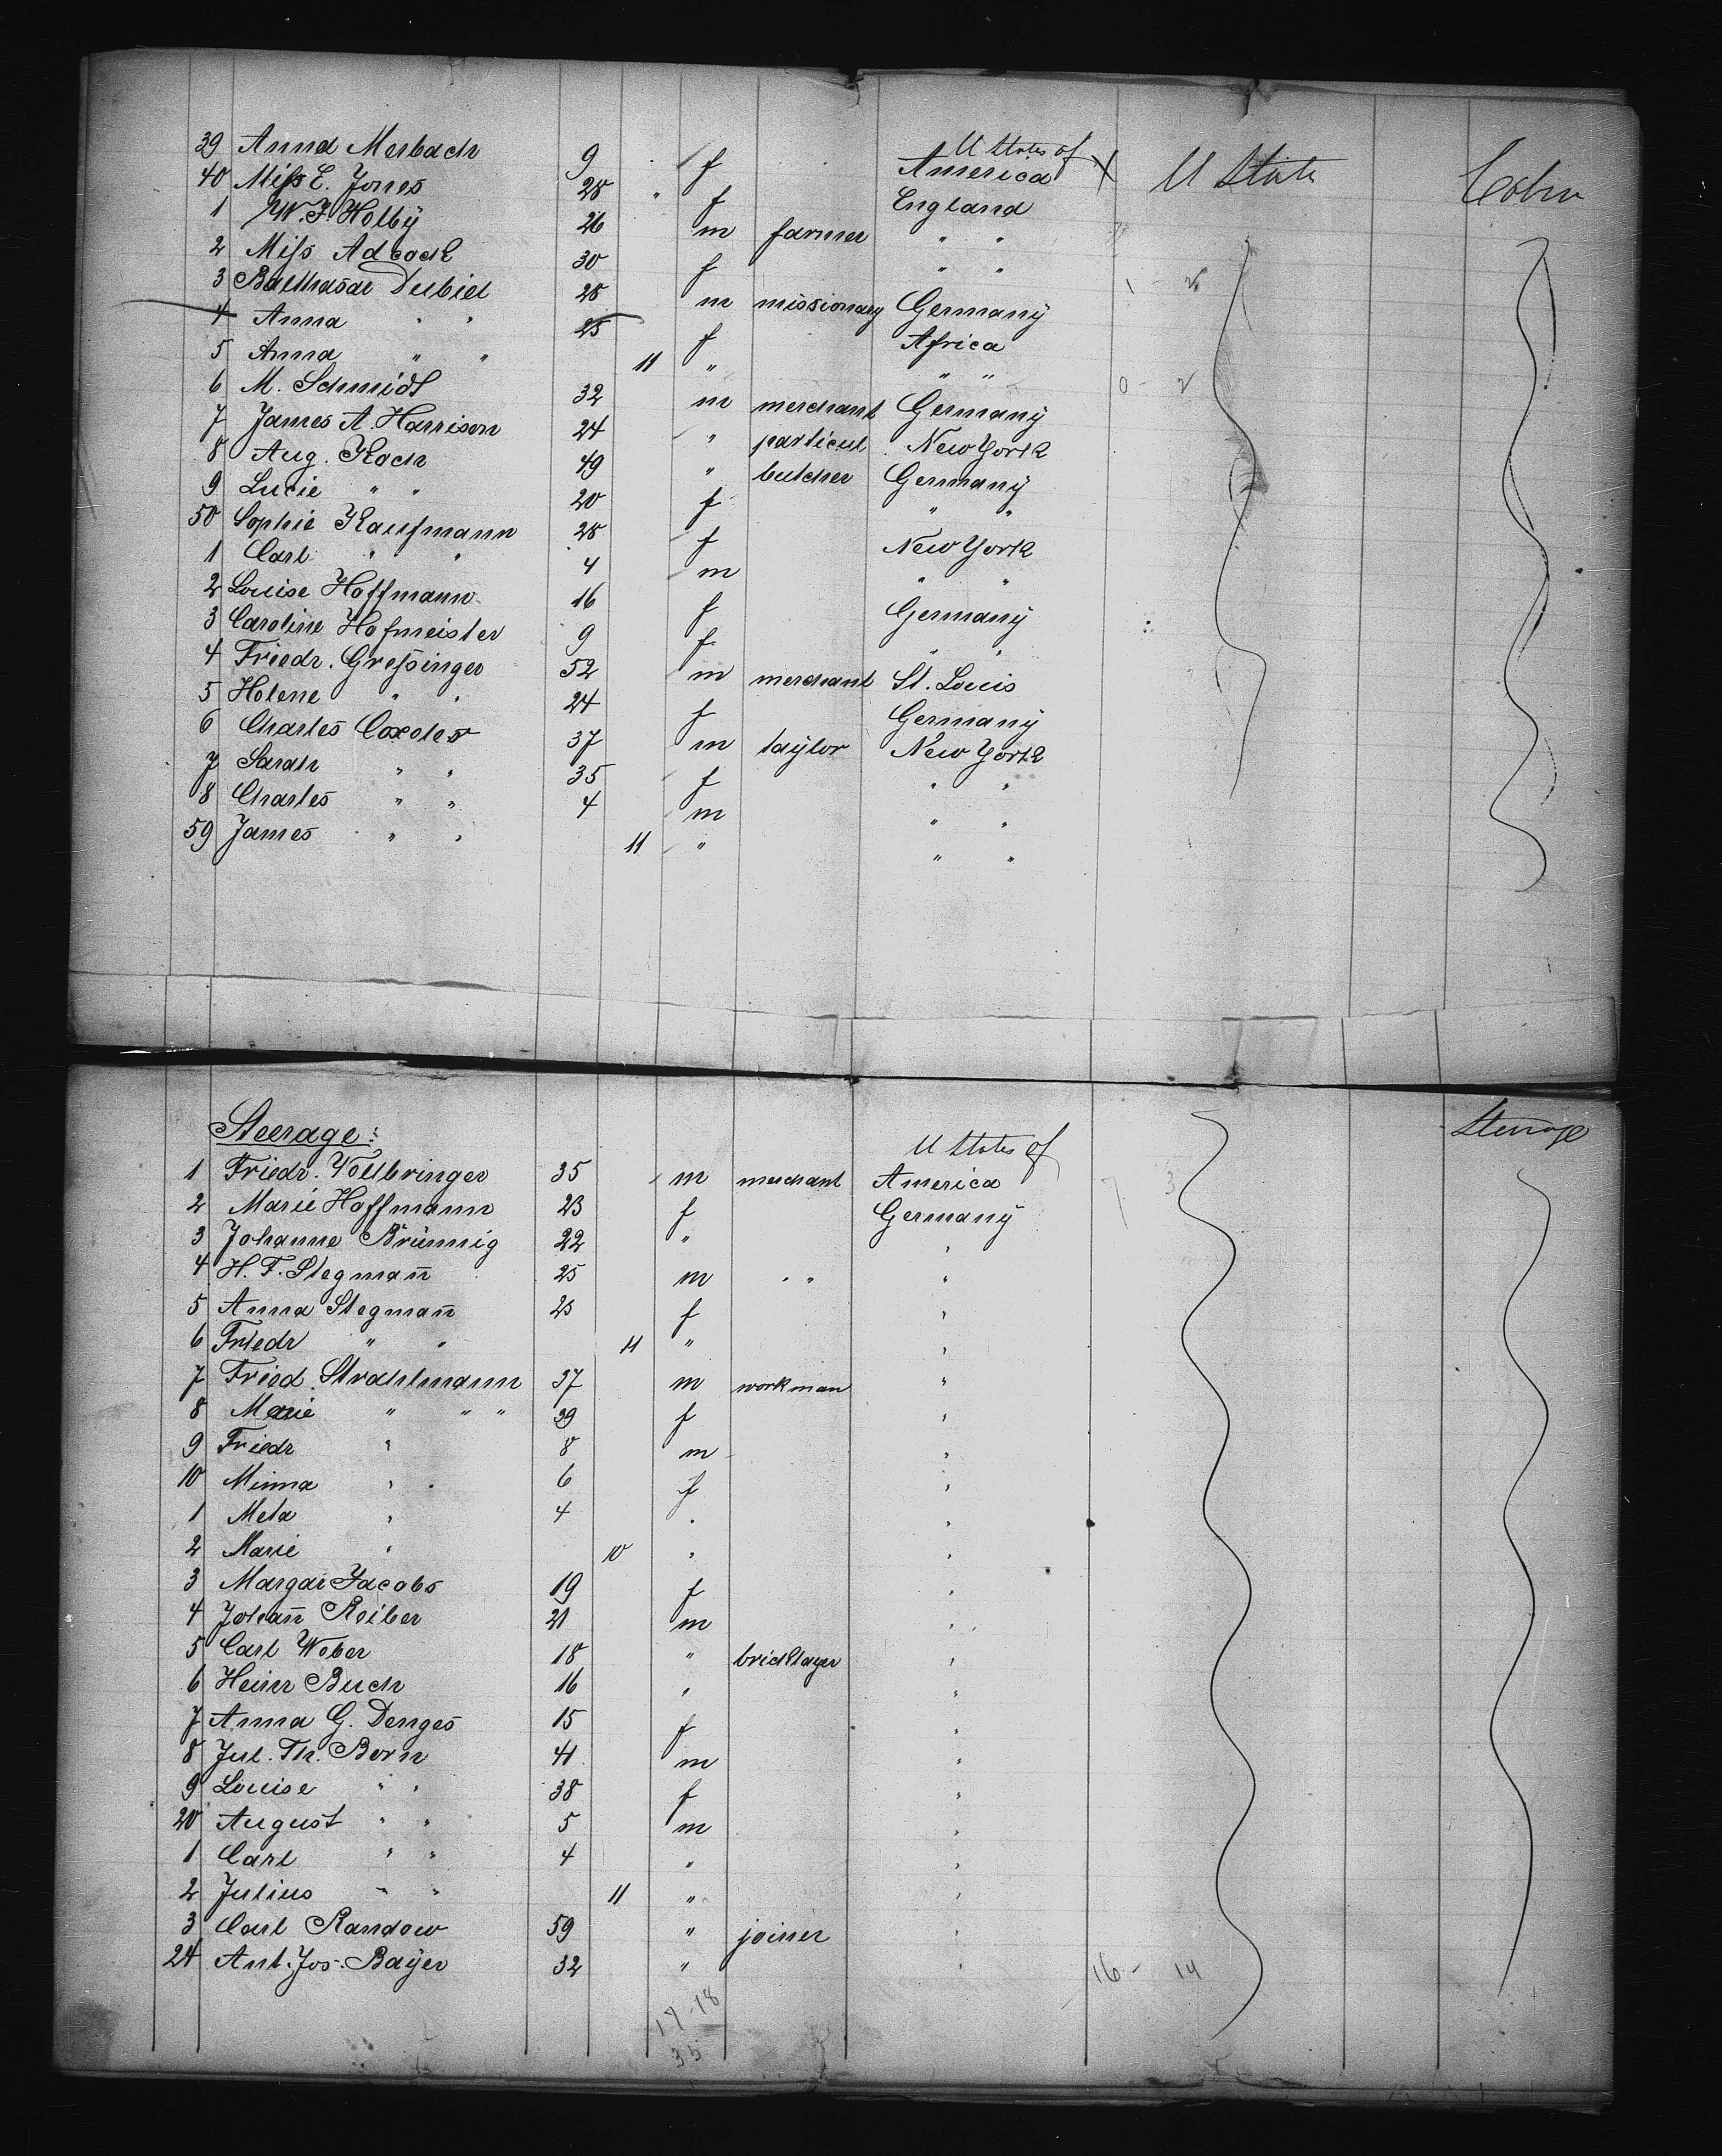 39 Anna Merbach 9 f U States of America U States Cabin
40 Miſs E. Jones 28 f England
1 W. J. Holby 26 m farmer " "
2 Miſs Adcock 30 f " "
3 Balthasar Dubiel 28 m missionary Germany
4 Anna " " 25 f Africa
5 Anna " " 11 " " "
6 M. Schmidt 32 m merchant Germany
7 James A. Harrison 24 " particul. New York
8 Aug. Koch 49 " butcher Germany
9 Lucie " " 20 f " "
50 Sophie Kaufmann 28 f New York
1 Carl " " 4 m " "
2 Louise Hoffmann 16 f Germany
3 Caroline Hofmeister 9 f " "
4 Friedr. Greſsinger 52 m merchant St. Louis
5 Helene " " 24 f Germany
6 Charles Coxeter 37 m taylor New York
7 Sarah " " 35 f " "
8 Charles " " 4 m " "
59 James " " 11 " " "
Steerage: U States of Steerage
1 Friedr. Vollbringer 35 m merchant America
2 Marie Hoffmann 23 f Germany
3 Johanne Brünnig 22 " "
4 H. F. Stegman̄ 25 m " " "
5 Anna Stegman̄ 25 f "
6 Friedr " " 11 " "
7 Fried. Strahlmann 37 m workman "
8 Marie " " " 39 f "
9 Friedr " 8 m "
10 Minna " " 6 f "
1 Meta " 4 " "
2 Marie " 10 " "
3 Margar Jacobs 19 f "
4 Johan̄ Reiber 21 m "
5 Carl Weber 18 " bricklayer "
6 Heinr Buch 16 " "
7 Anna G. Denges 15 f "
8 Jul. Th. Born 41 m "
9 Louise " " 38 f "
20 August " " 5 m "
1 Carl " " 4 " "
2 Julius " " 11 " "
3 Carl Randow 59 " joiner "
24 Ant. Jos. Bayer 32 " " 16 - 14
17-18
35